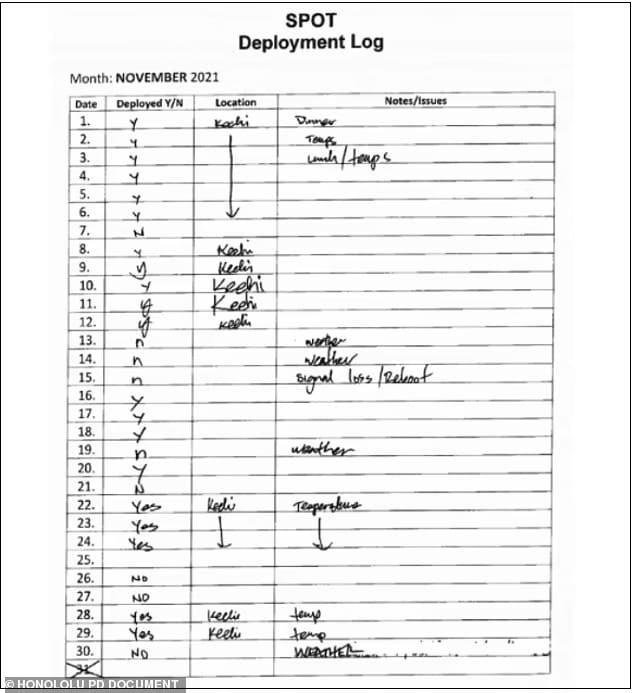 SPOT
Deployment Log
Month: NOVEMBER 2021
Date Deployed Y/N Location Notes/Issues
1. Y Keehi Dinner
2. Y Temps
3. Y Lunch/temps
4. Y
5. Y
6. Y
7. N
8. Y Keehi
9. y Keehi
10. Y Keehi
11. y Keehi
12. y Keehi
13. n weather
14. n weather
15. n signal loss/Reboot
16. Y
17. Y
18. Y
19. n weather
20. Y
21. N
22. Yes Keehi Temperature
23. Yes
24. Yes
25.
26. NO
27. NO
28. Yes Keehi temp
29. Yes Keehi temp
30. NO WEATHER
31
© HONOLOLU PD DOCUMENT